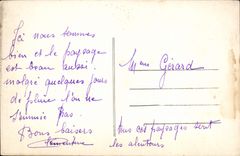 Ici nous sommes
bien et le paysage
est beau aussi.
malgré quelques jours
de pluie l'on ne
s'ennuie pas.
Bons baisers
Mme Gérard
tous ces paysages sont
les alentours